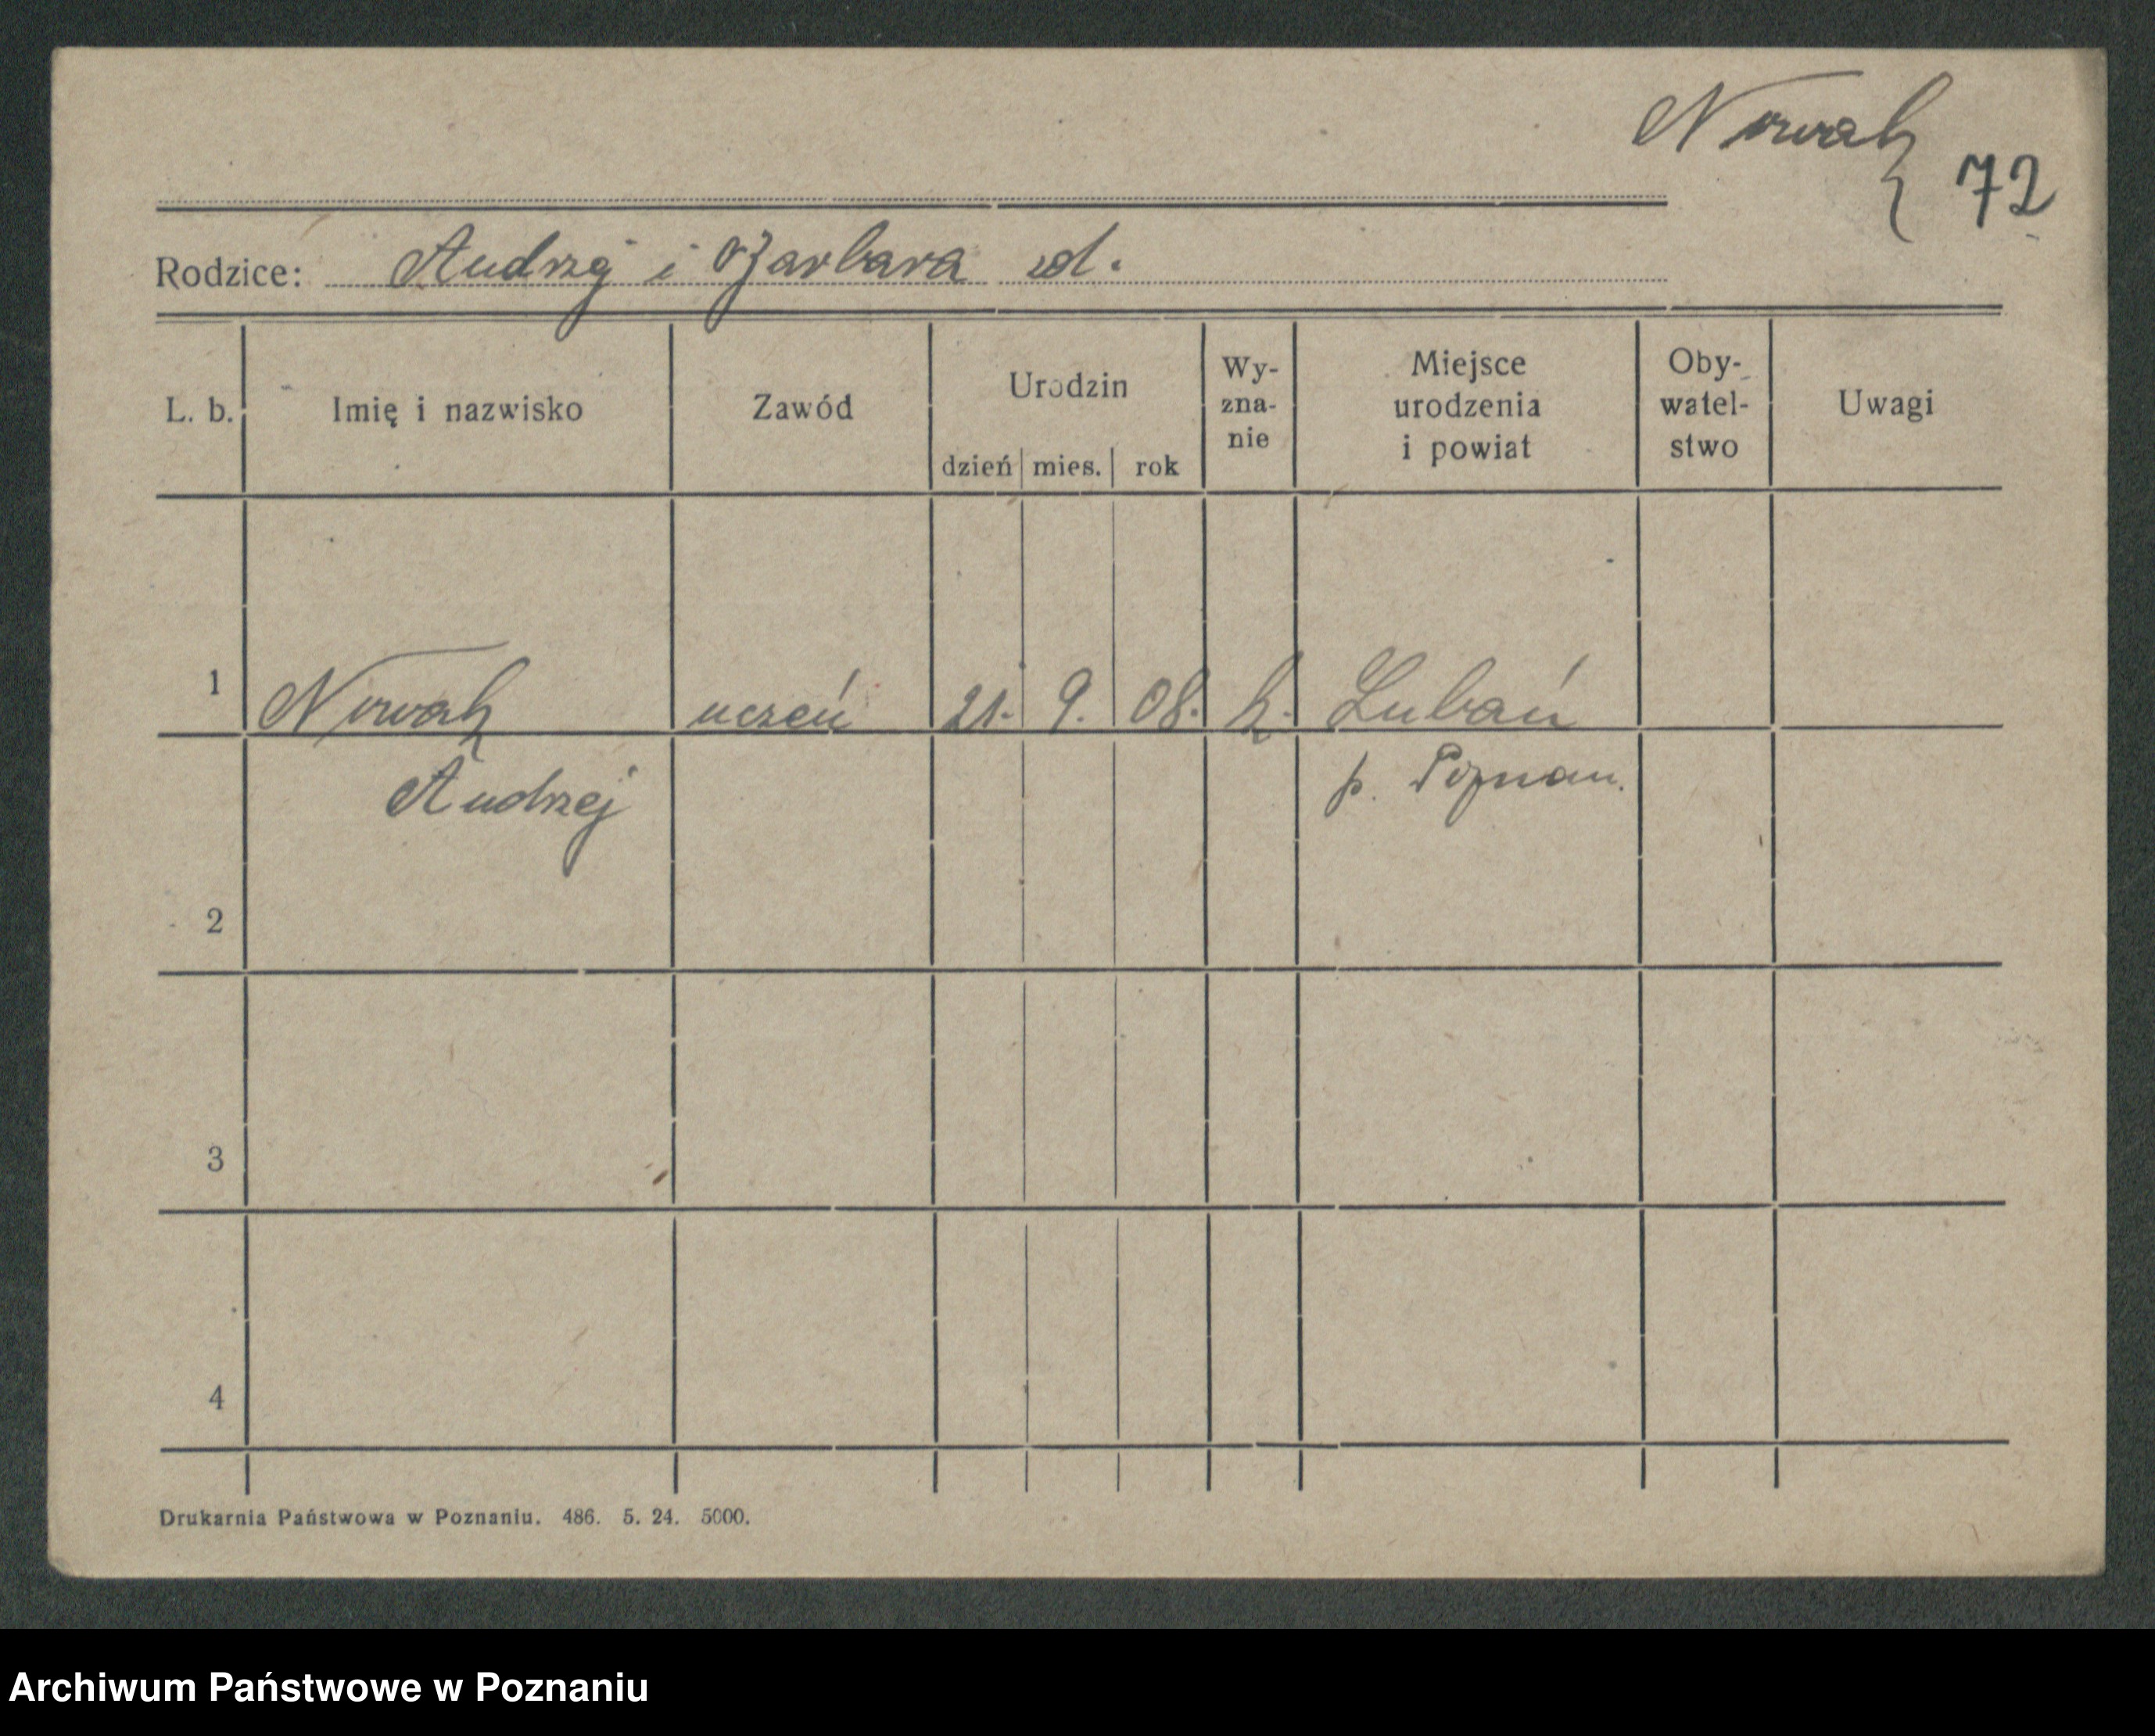 Nowak
72
Rodzice: Andrzej i Barbara
L. b. Imię i nazwisko Zawód Urodzin Wy- Miejsce Oby- Uwagi
zna- urodzenia watel-
nie i powiat stwo
dzień mies. rok
1 Nowak uczeń 21. 9. 08. k. Lubań
Andrzej p. Poznan.
2
3
4
Drukarnia Państwowa w Poznaniu. 486. 5. 24. 5000.
Archiwum Państwowe w Poznaniu